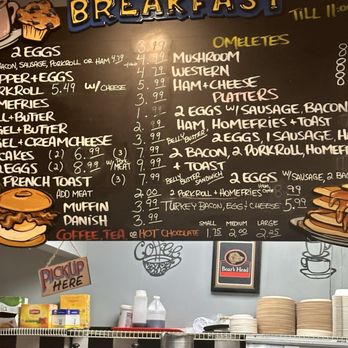 BREAKFAST
TILL 11:00
2 EGGS 3.99
BACON, SAUSAGE, PORKROLL OR HAM 4.39
PEPPER + EGGS 4.79
PORKROLL 5.49 W/ CHEESE 5.99
HOMEFRIES 3.99
ROLL + BUTTER 1.
BAGEL + BUTTER 2.99
BAGEL + CREAMCHEESE 3.99
CAKES (2) 6.99 (3) 7.99
EGGS (2) 8.99 W/ MEAT (3) 9.99
FRENCH TOAST (3) 7.99
ADD MEAT 2.00
MUFFIN 3.99
DANISH 3.99
COFFEE, TEA OR HOT CHOCOLATE
SMALL MEDIUM LARGE
1.75 2.00 2.25
OMELETES
MUSHROOM
WESTERN
HAM + CHEESE
PLATTERS
2 EGGS W/ SAUSAGE, BACON
HAM, HOMEFRIES + TOAST
BELLY BUTTER! 2 EGGS, 1 SAUSAGE, HA
2 BACON, 2 PORKROLL, HOMEF
+ TOAST
BELLY BUSTER SANDWICH 2 EGGS W/ SAUSAGE, 2 BA
2 PORKROLL + HOMEFRIES 8.99
TURKEY BACON, EGG + CHEESE 5.99
PICKUP HERE
Coffee
Boar's Head